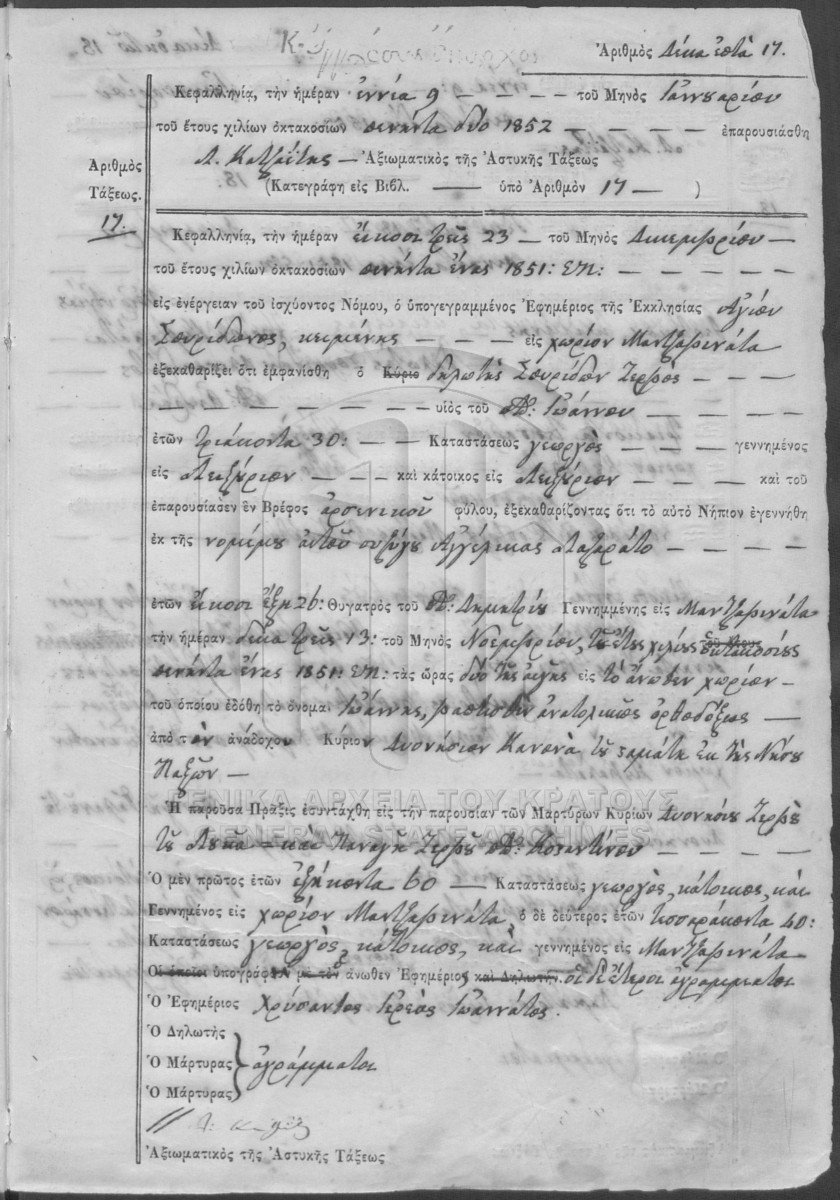 Ἀριθμὸς Δέκα ἑπτὰ 17.
Κεφαλληνία, τὴν ἡμέραν ἐννέα 9 — — — — τοῦ Μηνὸς Ἰαννουαρίου
τοῦ ἔτους χιλίων ὀκτακοσίων πενήντα δύο 1852 — — — — — ἐπαρουσιάσθη
— Ἀξιωματικὸς τῆς Ἀστυκῆς Τάξεως
(Κατεγράφη εἰς Βιβλ. — ὑπὸ Ἀριθμὸν 17 — )
Ἀριθμὸς
Τάξεως.
17.
Κεφαλληνία, τὴν ἡμέραν εἴκοσι τρεῖς 23 — τοῦ Μηνὸς Δεκεμβρίου —
τοῦ ἔτους χιλίων ὀκτακοσίων πενήντα ἕνας 1851: ΕΠ: — — — — —
εἰς ἐνέργειαν τοῦ ἰσχύοντος Νόμου, ὁ ὑπογεγραμμένος Ἐφημέριος τῆς Ἐκκλησίας Ἁγίου
Σπυρίδωνος, κειμένης — — — — εἰς χωρίον Μαντζαβινάτα
ἐξεκαθαρίζει ὅτι ἐμφανίσθη ὁ Κύριο δηλωτὴς Σπυρίδων Ζερβὸς — — — —
— — — — — — — υἱὸς τοῦ Ἰωάννου — — — —
ἐτῶν τριάκοντα 30: — — Καταστάσεως γεωργὸς — — — — γεννημένος
εἰς Ληξούριον — — — καὶ κάτοικος εἰς Ληξούριον — — — — καὶ τοῦ
ἐπαρουσίασεν ἓν Βρέφος ἀρσενικοῦ φύλου, ἐξεκαθαρίζοντας ὅτι τὸ αὐτὸ Νήπιον ἐγεννήθη
ἐκ τῆς νομίμου αὐτοῦ συζύγου Ἀγγέλικας — — — — —
ἐτῶν εἴκοσι ἕξη 26: Θυγατρὸς τοῦ Δημητρίου Γεννημμένης εἰς Μαντζαβινάτα
τὴν ἡμέραν δέκα τρεῖς 13: τοῦ Μηνὸς Νοεμβρίου, τοῦ ἔτους χιλίους τοῦ ἔτους ὀκτακοσίους
πενήντα ἕνας 1851: ΕΠ: τὰς ὥρας δύο τῆς αὐγῆς εἰς τὸ ἄνωθεν χωρίον —
τοῦ ὁποίου ἐδόθη τὸ ὄνομα Ἰωάννης, βαπτισθὲν ἀνατολικῶς ὀρθοδόξως —
ἀπὸ τὸν ἀνάδοχον Κύριον Διονύσιον ἐκ τῆς Νήσου
Παξῶν —
ΓΕΝΙΚΑ ΑΡΧΕΙΑ ΤΟΥ ΚΡΑΤΟΥΣ
GENERAL STATE ARCHIVES
Ἡ παροῦσα Πρᾶξις ἐσυντάχθη εἰς τὴν παρουσίαν τῶν Μαρτύρων Κυρίων Διονυσίου Ζερβοῦ
τοῦ Λουκᾶ — καὶ Παναγῆ Ζερβοῦ Κοσταντίνου — — — —
Ὁ μὲν πρῶτος ἐτῶν ἑξήκοντα 60 — Καταστάσεως γεωργὸς, κάτοικος, καὶ
Γεννημένος εἰς χωρίον Μαντζαβινάτα, ὁ δὲ δεύτερος ἐτῶν τεσαράκοντα 40:
Καταστάσεως γεωργὸς, κάτοικος, καὶ γεννημένος εἰς Μαντζαβινάτα
Οἱ ὁποῖοι ὑπογράφουν με τὸν ἄνωθεν Ἐφημέριος καὶ Δηλωτήν. οἱ δὲ ἕτεροι ἀγράμματοι
Ὁ Ἐφημέριος Χρύσανθος Ἱερεὺς Ἰωαννάτος.
Ὁ Δηλωτὴς
Ὁ Μάρτυρας ἀγράμματοι
Ὁ Μάρτυρας
Ἀξιωματικὸς τῆς Ἀστυκῆς Τάξεως